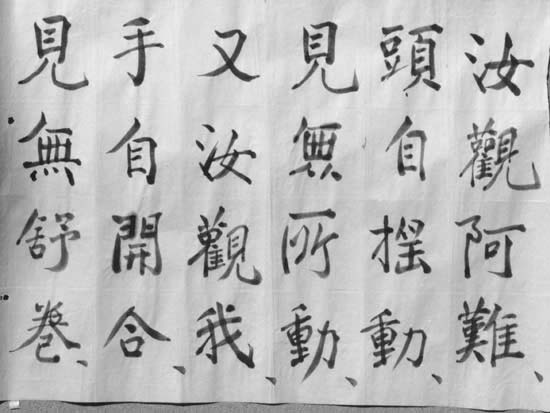 汝觀阿難、
頭自搖動、
見無所動、
又汝觀我、
手自開合、
見無舒卷、